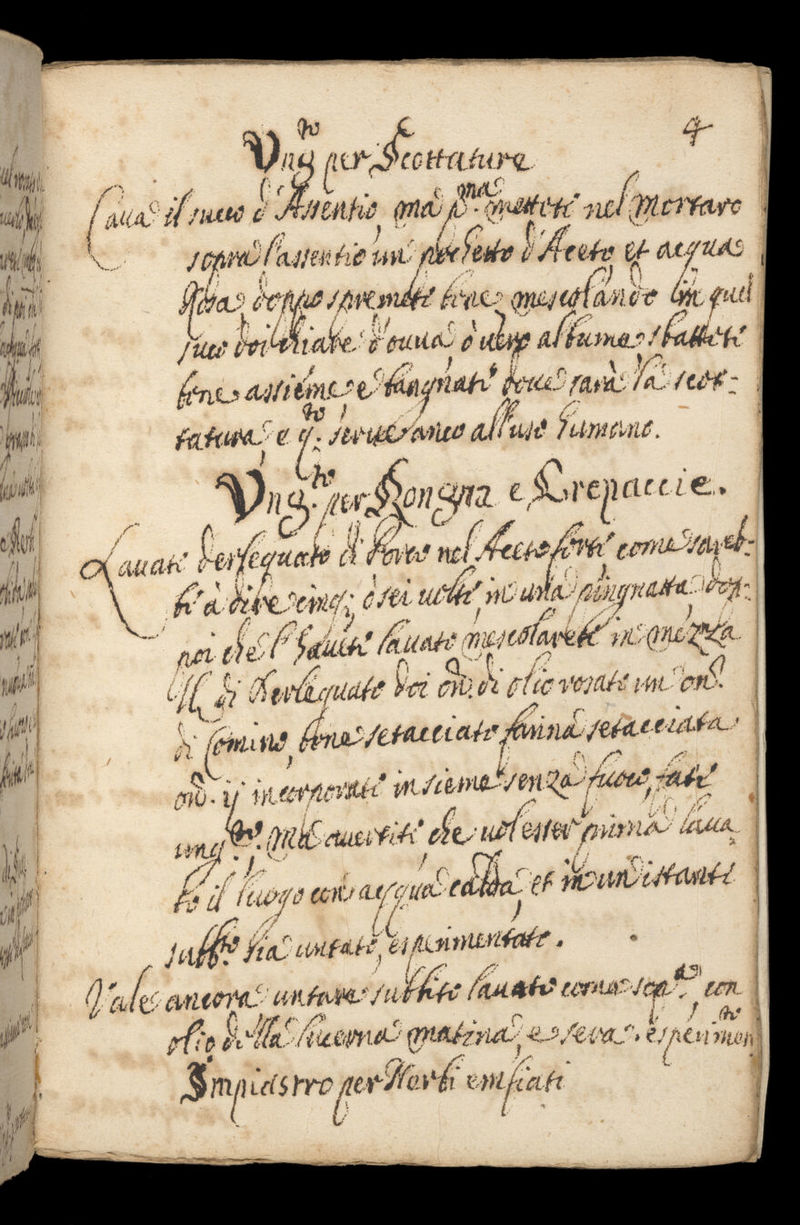 4
Ung.to per Scottature
Caua il succo d'Assentio, ma p.ma metteti nel Mortaro
sopra l'assentio un pochetto d'Aceto, et acqua
Rosa, doppo spremeti bene, mescolando in quel
suco doi chiare d'ouua ò uero albume sbatteti
bene assieme e bangnati doue sarà la scot-
tatura, e q.to serue anco all'uso humano.
Ung.to per Rongna e Crepaccie.
Lauati derlequato di Porco nel Aceto forti come sareb-
bi à dire cinq; ò sei uolti, in una pingnatta dop-
poi che l'haueti lauato mescolareti in mezza
di Derlequato doi on. di olio rosato un on.
di Comino, bene setacciato farina setacciata
on. ij incorporati insieme senza fuoco, fati
ung.to, Ma auertiti, che uol esser prima laua-
to il luogo con acqua calda, et in un istanti
subb.to sia untato, esperimentato.
Vale ancora untare subbito lauato come sop.a, con
olio della lucerna matina, e sera. esperimen.to
Impiastro per Nerbi emfiati